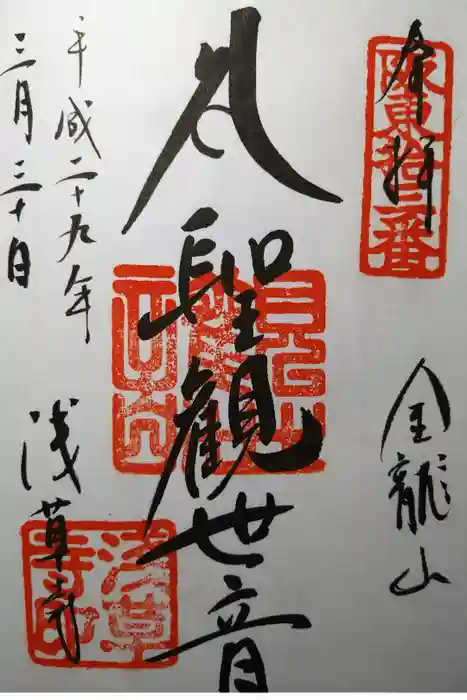 奉拝
阪東拾三番
金龍山
聖観世音
平成二十九年
三月三十日
浅草寺
淺草寺印